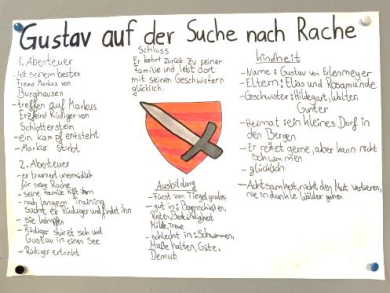 Gustav auf der Suche nach Rache
1. Abenteuer
- Mit seinem besten
Freund Markus von
Burghausen
- treffen auf Markus
Erzfeind Rüdiger von
Schlotterstein
- ein kampf entsteht
- Markus stirbt
2. Abenteuer
- er trainiert unermüdlich
für seine Rache
- seine Familie hilft ihm
- nach langem Training
sucht er Rüdiger und findet ihn
- sie kämpfen
- Rüdiger stürzt sich und
Gustav in einen See
- Rüdiger ertrinkt
Schluss
Er kehrt zurück zu seiner
Familie und lebt dort
mit seinen Geschwistern
glücklich.
Ausbildung
- Fürst von Tiegelgraben
- gut in: Bogenschießen,
Reiten, Beständigkeit
Milde, Treue
- schlecht in: Schwimmen,
Maße halten, Güte,
Demut
Kindheit
- Name: Gustav von Erlenmeyer
- Eltern: Elias und Rosamunde
- Geschwister: Hildegart, Walter
Gunter
- Heimat: ein kleines Dorf in
den Bergen
- Er reitet gerne, aber kann nicht
schwimmen
- glücklich
- Achtsamkeit, nicht den Mut verlieren,
nie in dunkle Wälder gehen